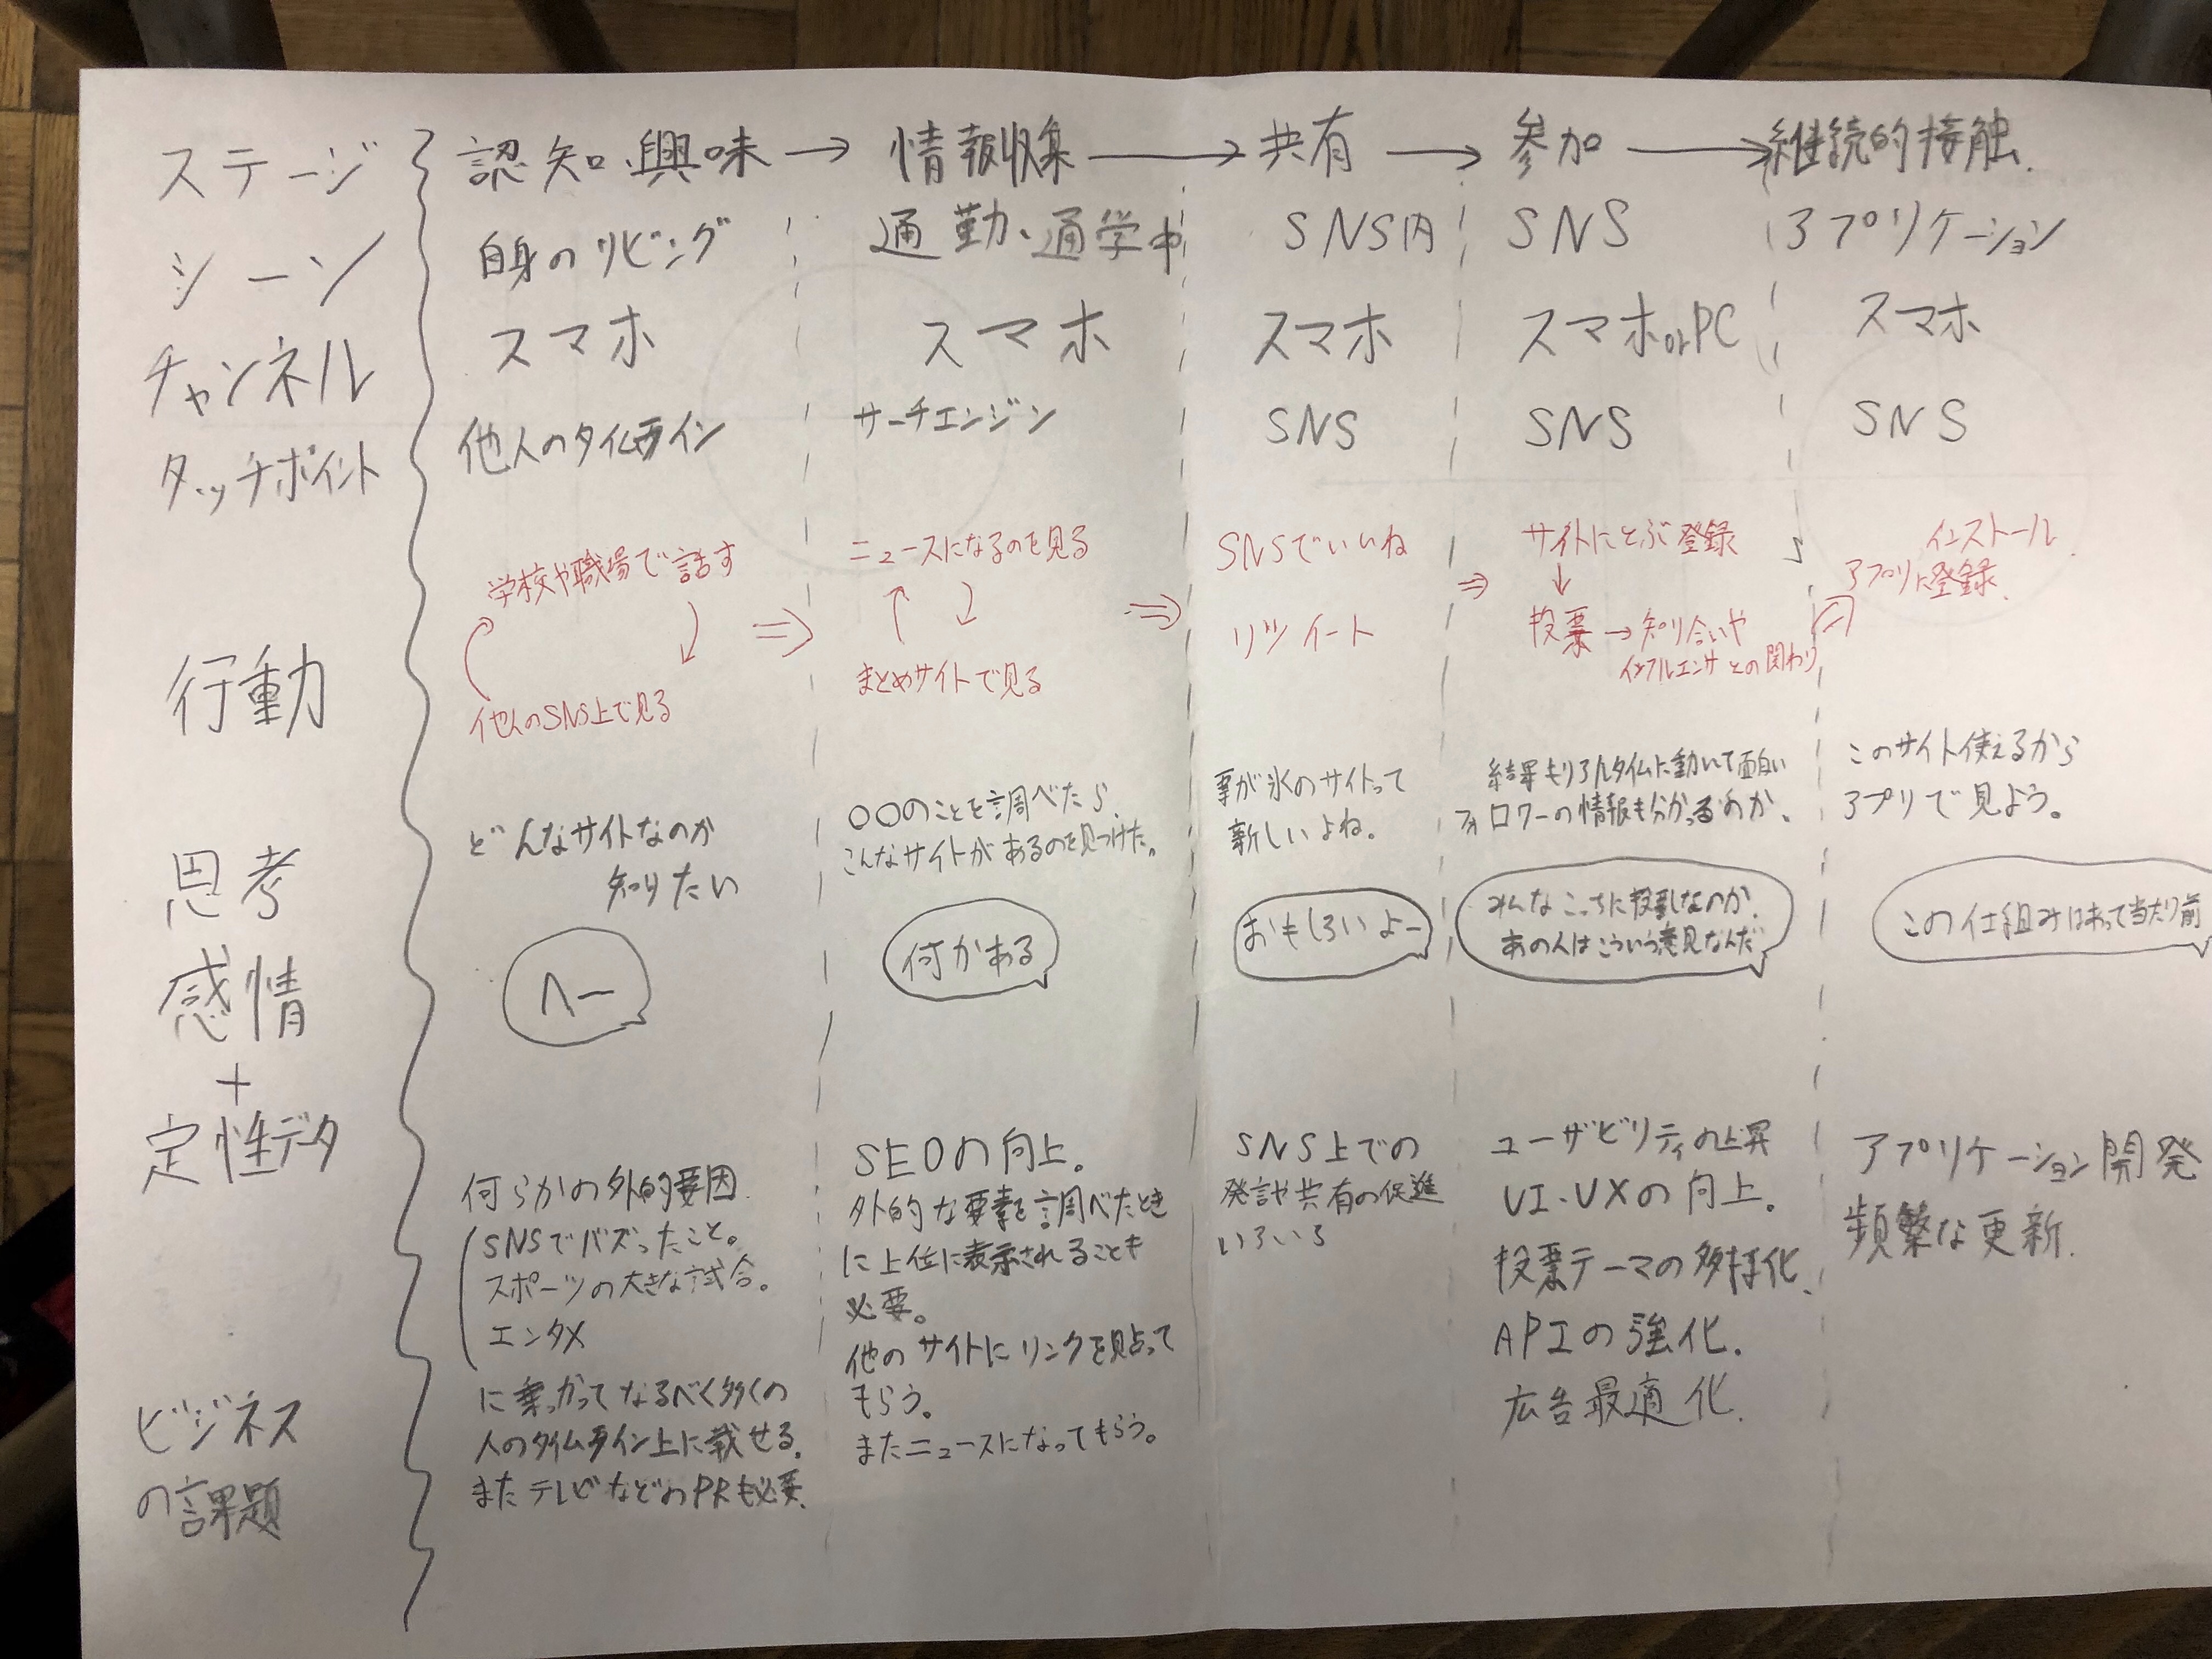 ステージ
認知・興味 → 情報収集 → 共有 → 参加 → 継続的接触.
シーン
自身のリビング
通勤、通学中
SNS内
SNS
アプリケーション
チャンネル
スマホ
スマホ
スマホ
スマホorPC
スマホ
タッチポイント
他人のタイムライン
サーチエンジン
SNS
SNS
SNS
行動
学校や職場で話す
他人のSNS上で見る
⇒
ニュースになるのを見る
まとめサイトで見る
⇒
SNSでいいね
リツイート
⇒
サイトにとぶ登録
↓
投票→知り合いや
インフルエンサとの関わり
⇒
インストール
アプリに登録.
思考
感情
+
定性データ
どんなサイトなのか
知りたい
へー
〇〇のことを調べたら、
こんなサイトがあるのを見つけた。
何かある
のサイトって
新しいよね。
おもしろいよー
結果もリアルタイムに動いて面白い
フォロワーの情報も分かるのか、
みんなこっちに投票なのか.
あの人はこういう意見なんだ
このサイト使えるから
アプリで見よう。
この仕組みはあって当たり前
ビジネス
の課題
何らかの外的要因
SNSでバズったこと。
スポーツの大きな試合。
エンタメ
に乗っかってなるべく多くの
人のタイムライン上に載せる.
またテレビなどのPRも必要.
SEOの向上。
外的な要素を調べたとき
に上位に表示されることも
必要。
他のサイトにリンクを貼って
もらう。
またニュースになってもらう。
SNS上での
発言や共有の促進
いろいろ
ユーザビリティの上昇
UI・UXの向上。
投票テーマの多様化、
APIの強化.
広告最適化.
アプリケーション開発
頻繁な更新.